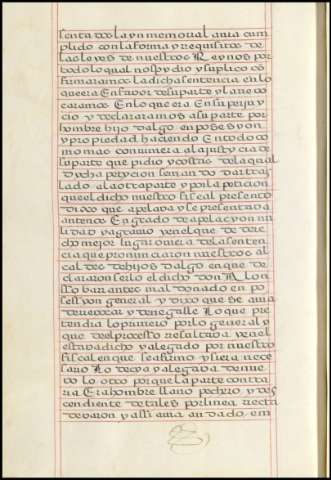 sentadoclaynmemorial auia cum
plido con laforma y requisitos de
las leyes de nuestros Reynos por
todo lo qual nos pydio y suplico cō
firmaramos la dicha sentencia en lo
que era En fauor de su parte y la reuo
caramos En lo que era En su perjuy
cio y declararamos a su parte por
hombre hijo dalgo en posesyon
y propiedad haciendo En todo co
mo mas conuiniera al ajusty cia de
su parte que pidio y costas de la qual
dycha petycion se mando dar tras
lado a la otra parte y por la peticion
que el dicho nuestro fiscal presento
dixo que apelaua y se presentaua
ante nos En grado de apelacyon nu
lidad y agrauio y en el que de dere
cho mejor lugar ouiera de la senten
cia que pronunciaron nuestros al
caldes de hijos dalgo en que de
clararon ser lo el dicho don Alon
sso barrantes maldonado en po
sessyon general y dixo que se auia
de reuocar y denegalle Lo que pre
tendia lo primero por lo general y
que del processo resultaua y en el
estaua dicho y alegado por nuestro
fiscal en que se afirmo y siera nece
sario Lo decya y alegaua de nue
bo Lo otro porque la parte contra
ria Era hombre llano pechero y des
cendiente de tales por linea recta
de varon y assi auia andado em